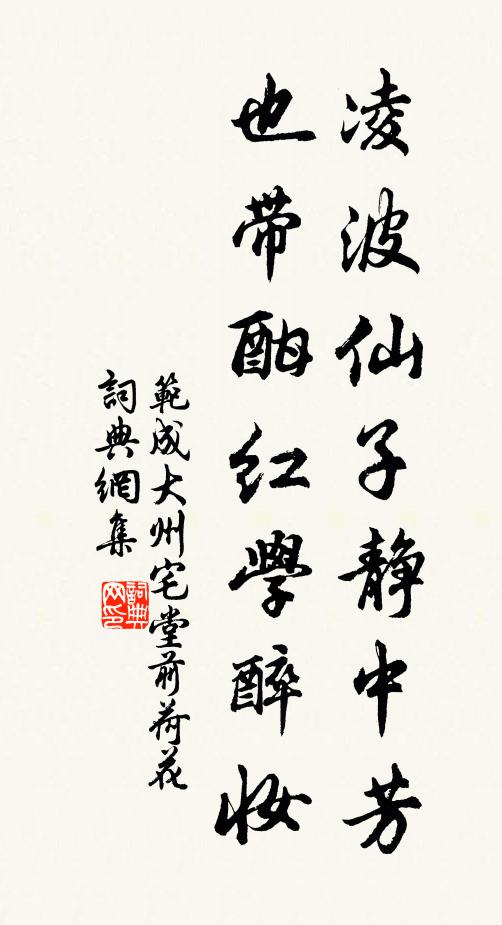 凌波仙子静中芳
也带酣红学醉妆
範成大州宅堂前荷花
詞典網集
詞典网印